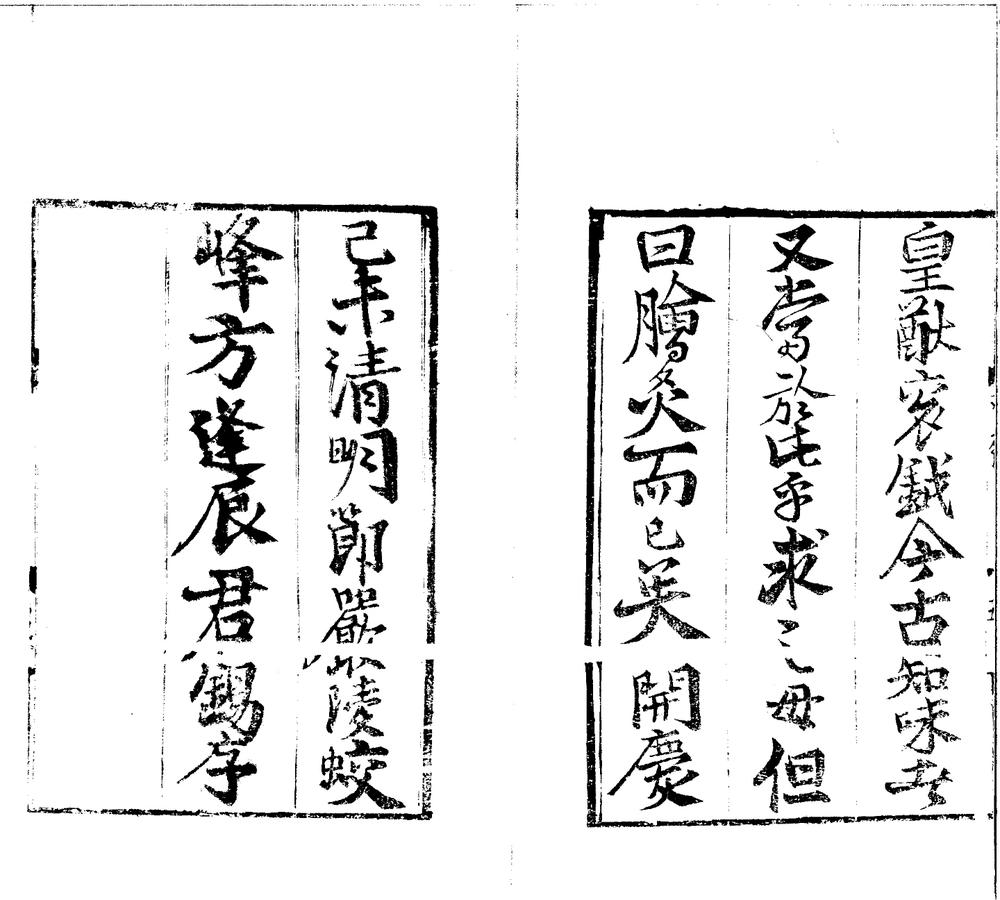 皇猷衮鉞今古知味者
又當於此乎求之毋但
曰膾炙而已矣 開慶
己未清明節嚴陵蛟
峰方逢辰君錫序